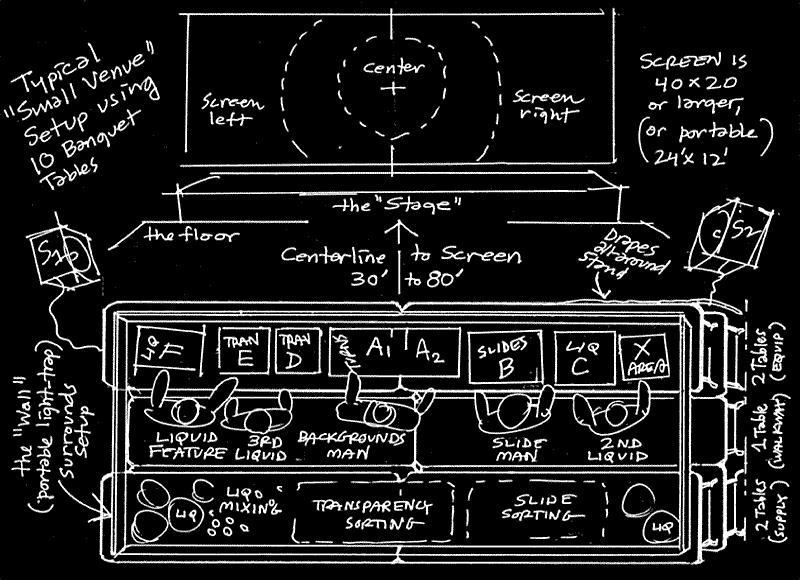 Typical
"Small Venue"
Setup using
10 Banquet
Tables
center
Screen
left
Screen
right
SCREEN IS
40 x 20
or larger,
(or portable)
24' x 12'
the "Stage"
the floor
Centerline to Screen
30' to 80'
Drapes
all-around
stand
LIQ
F
TRAN
E
TRAN
D
TRANS
A1
A2
SLIDES
B
LIQ
C
X
AREA
LIQUID
FEATURE
3RD
LIQUID
BACKGROUNDS
MAN
SLIDE
MAN
2ND
LIQUID
the "Wall"
(portable light-trap)
Surrounds
Setup
LIQ
LIQ
MIXING
TRANSPARENCY
SORTING
SLIDE
SORTING
LIQ
2 Tables
(EQUIP)
1 Table
(WALKWAY)
2 Tables
(SUPPLY)